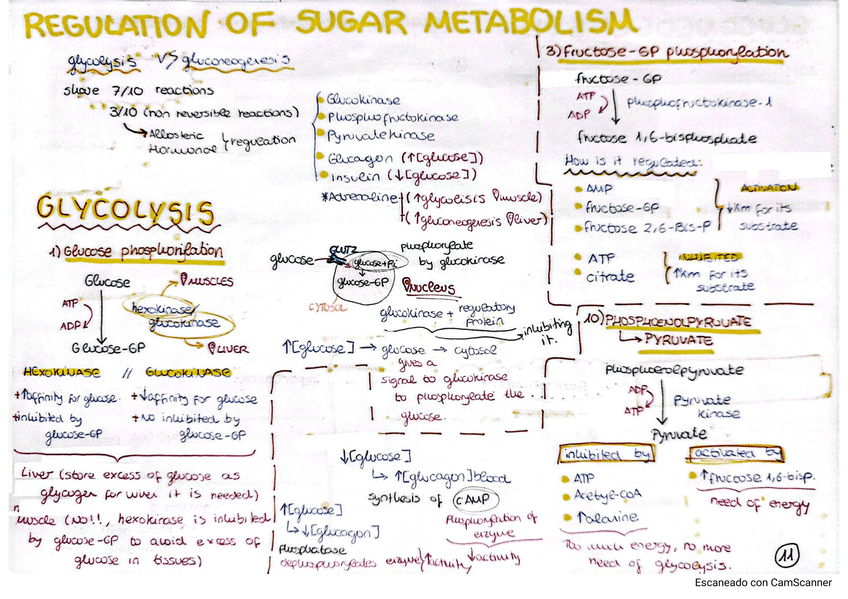 REGULATION OF SUGAR METABOLISM
glycolysis VS gluconeogenesis
share 7/10 reactions
3/10 (non reversible reactions)
Allosteric
Hormonal
regulation
Glucokinase
Phosphofructokinase
Pyruvate kinase
Glucagon (↑[glucose])
Insulin (↓[glucose])
*Adrenaline
(↑glycolisis muscle)
(↑gluconeogenesis liver)
GLYCOLYSIS
1) Glucose phosphorilation
Glucose
ATP
ADP
hexokinase/
glucokinase
MUSCLES
LIVER
Glucose-6P
HEXOKINASE // GLUCOKINASE
+↑affinity for glucose.
+inhibited by
glucose-6P
+↓affinity for glucose
+No inhibited by
glucose-6P
Liver (store excess of glucose as
glycogen for when it is needed)
muscle (NO!!, hexokinase is inhibited
by glucose-6P to avoid excess of
glucose in tissues)
glucose
GLUT2
glucose+Pi
glucose-6P
phosphorylate
by glucokinase
CYTOSOL
Nucleus
glucokinase + regulatory
protein
inhibiting
it.
↑[glucose] → glucose → cytosol
gives a
signal to glucokinase
to phosphorylate the
glucose.
↓[glucose]
↑[glucagon] blood
synthesis of cAMP
↑[glucose]
↓[glucagon]
Phosphatase
dephosphorylates enzyme/↑activity
Phosphorylation of
enzyme
↓activity
3) Fructose-6P phosphorylation
fructose-6P
ATP
ADP
phosphofructokinase-1
fructose 1,6-bisphosphate
How is it regulated:
AMP
fructose-6P
fructose 2,6-Bis-P
ACTIVATION
↓Km for its
substrate
ATP
citrate
INHIBITED
↑Km for its
substrate
10) PHOSPHOENOLPYRUVATE
PYRUVATE
phosphoenolpyruvate
ADP
ATP
Pyruvate
kinase
Pyruvate
inhibited by
ATP
Acetyl-CoA
↑alanine
Too much energy, no more
need of glycolysis.
activated by
↑fructose 1,6-bisp.
need of energy
11
Escaneado con CamScanner